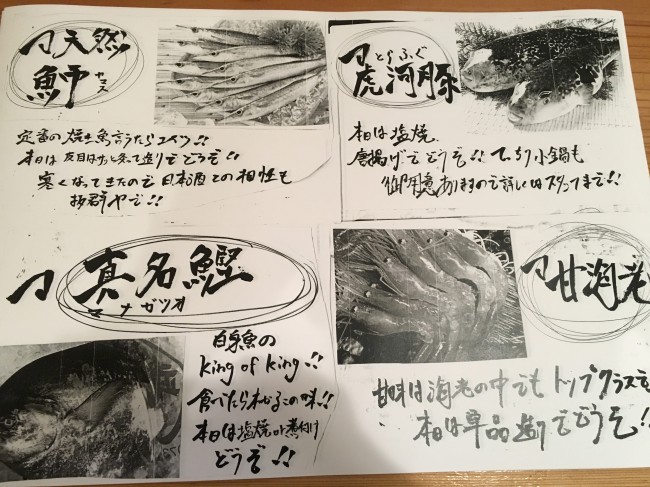 天然
魳
カマス
定番の焼き魚言うたらコイツ!!
本日は皮目はサッと炙って造りでどうぞ!!
寒くなってきたので日本酒との相性も
抜群やで!!
とらふぐ
虎河豚
本日は塩焼、
唐揚げでどうぞ!!てっちり小鍋も
御用意ありますので詳しくはスタッフまで!!
真名鰹
マナガツオ
白身魚の
king of king!!
食べたらわかるこの味!!
本日は塩焼or煮付け
どうぞ!!
甘海老
甘味は海老の中でもトップクラス
本日は単品造りでどうぞ!!